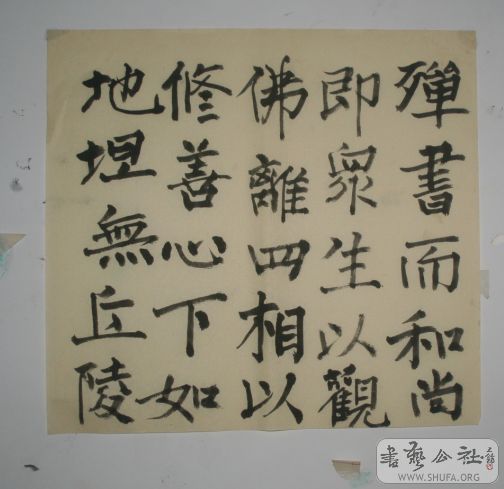 殫書而和尚
即眾生以觀
佛離四相以
修善心下如
地坦無丘陵
書藝公社
WWW.SHUFA.ORG